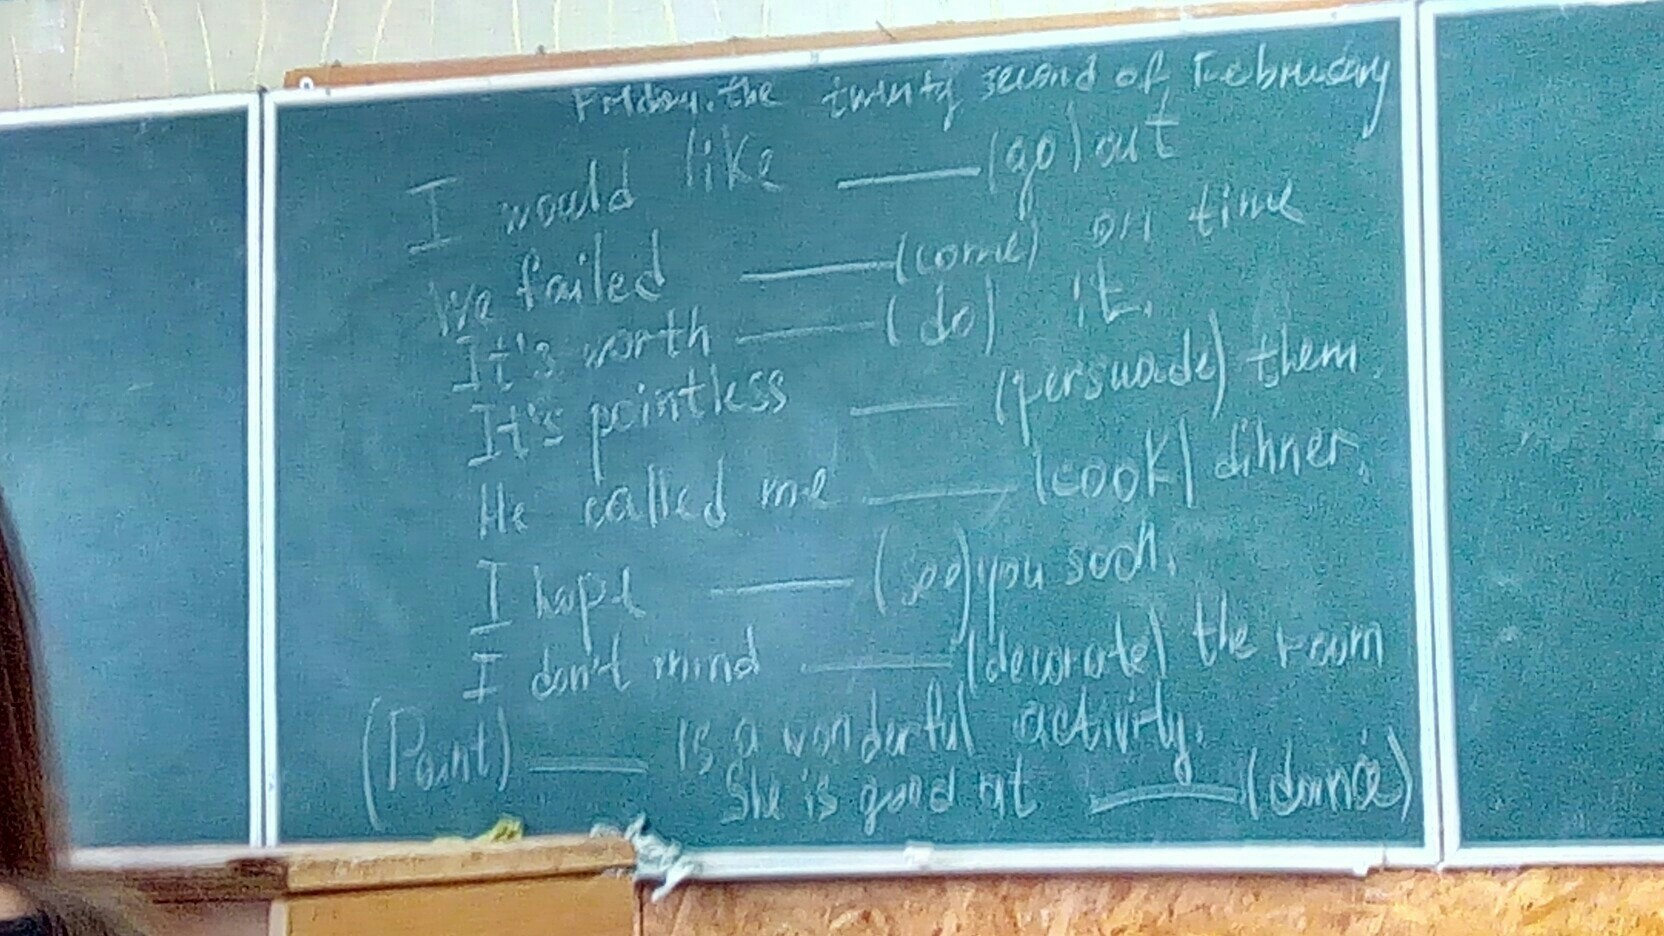 Friday, the twenty second of February
I would like ____ (go) out
We failed ____ (come) on time
It's worth ____ (do) it.
It's pointless ____ (persuade) them.
He called me ____ (cook) dinner.
I hope ____ (see) you soon.
I don't mind ____ (decorate) the room
(Paint) ____ is a wonderful activity.
She is good at ____ (dance)